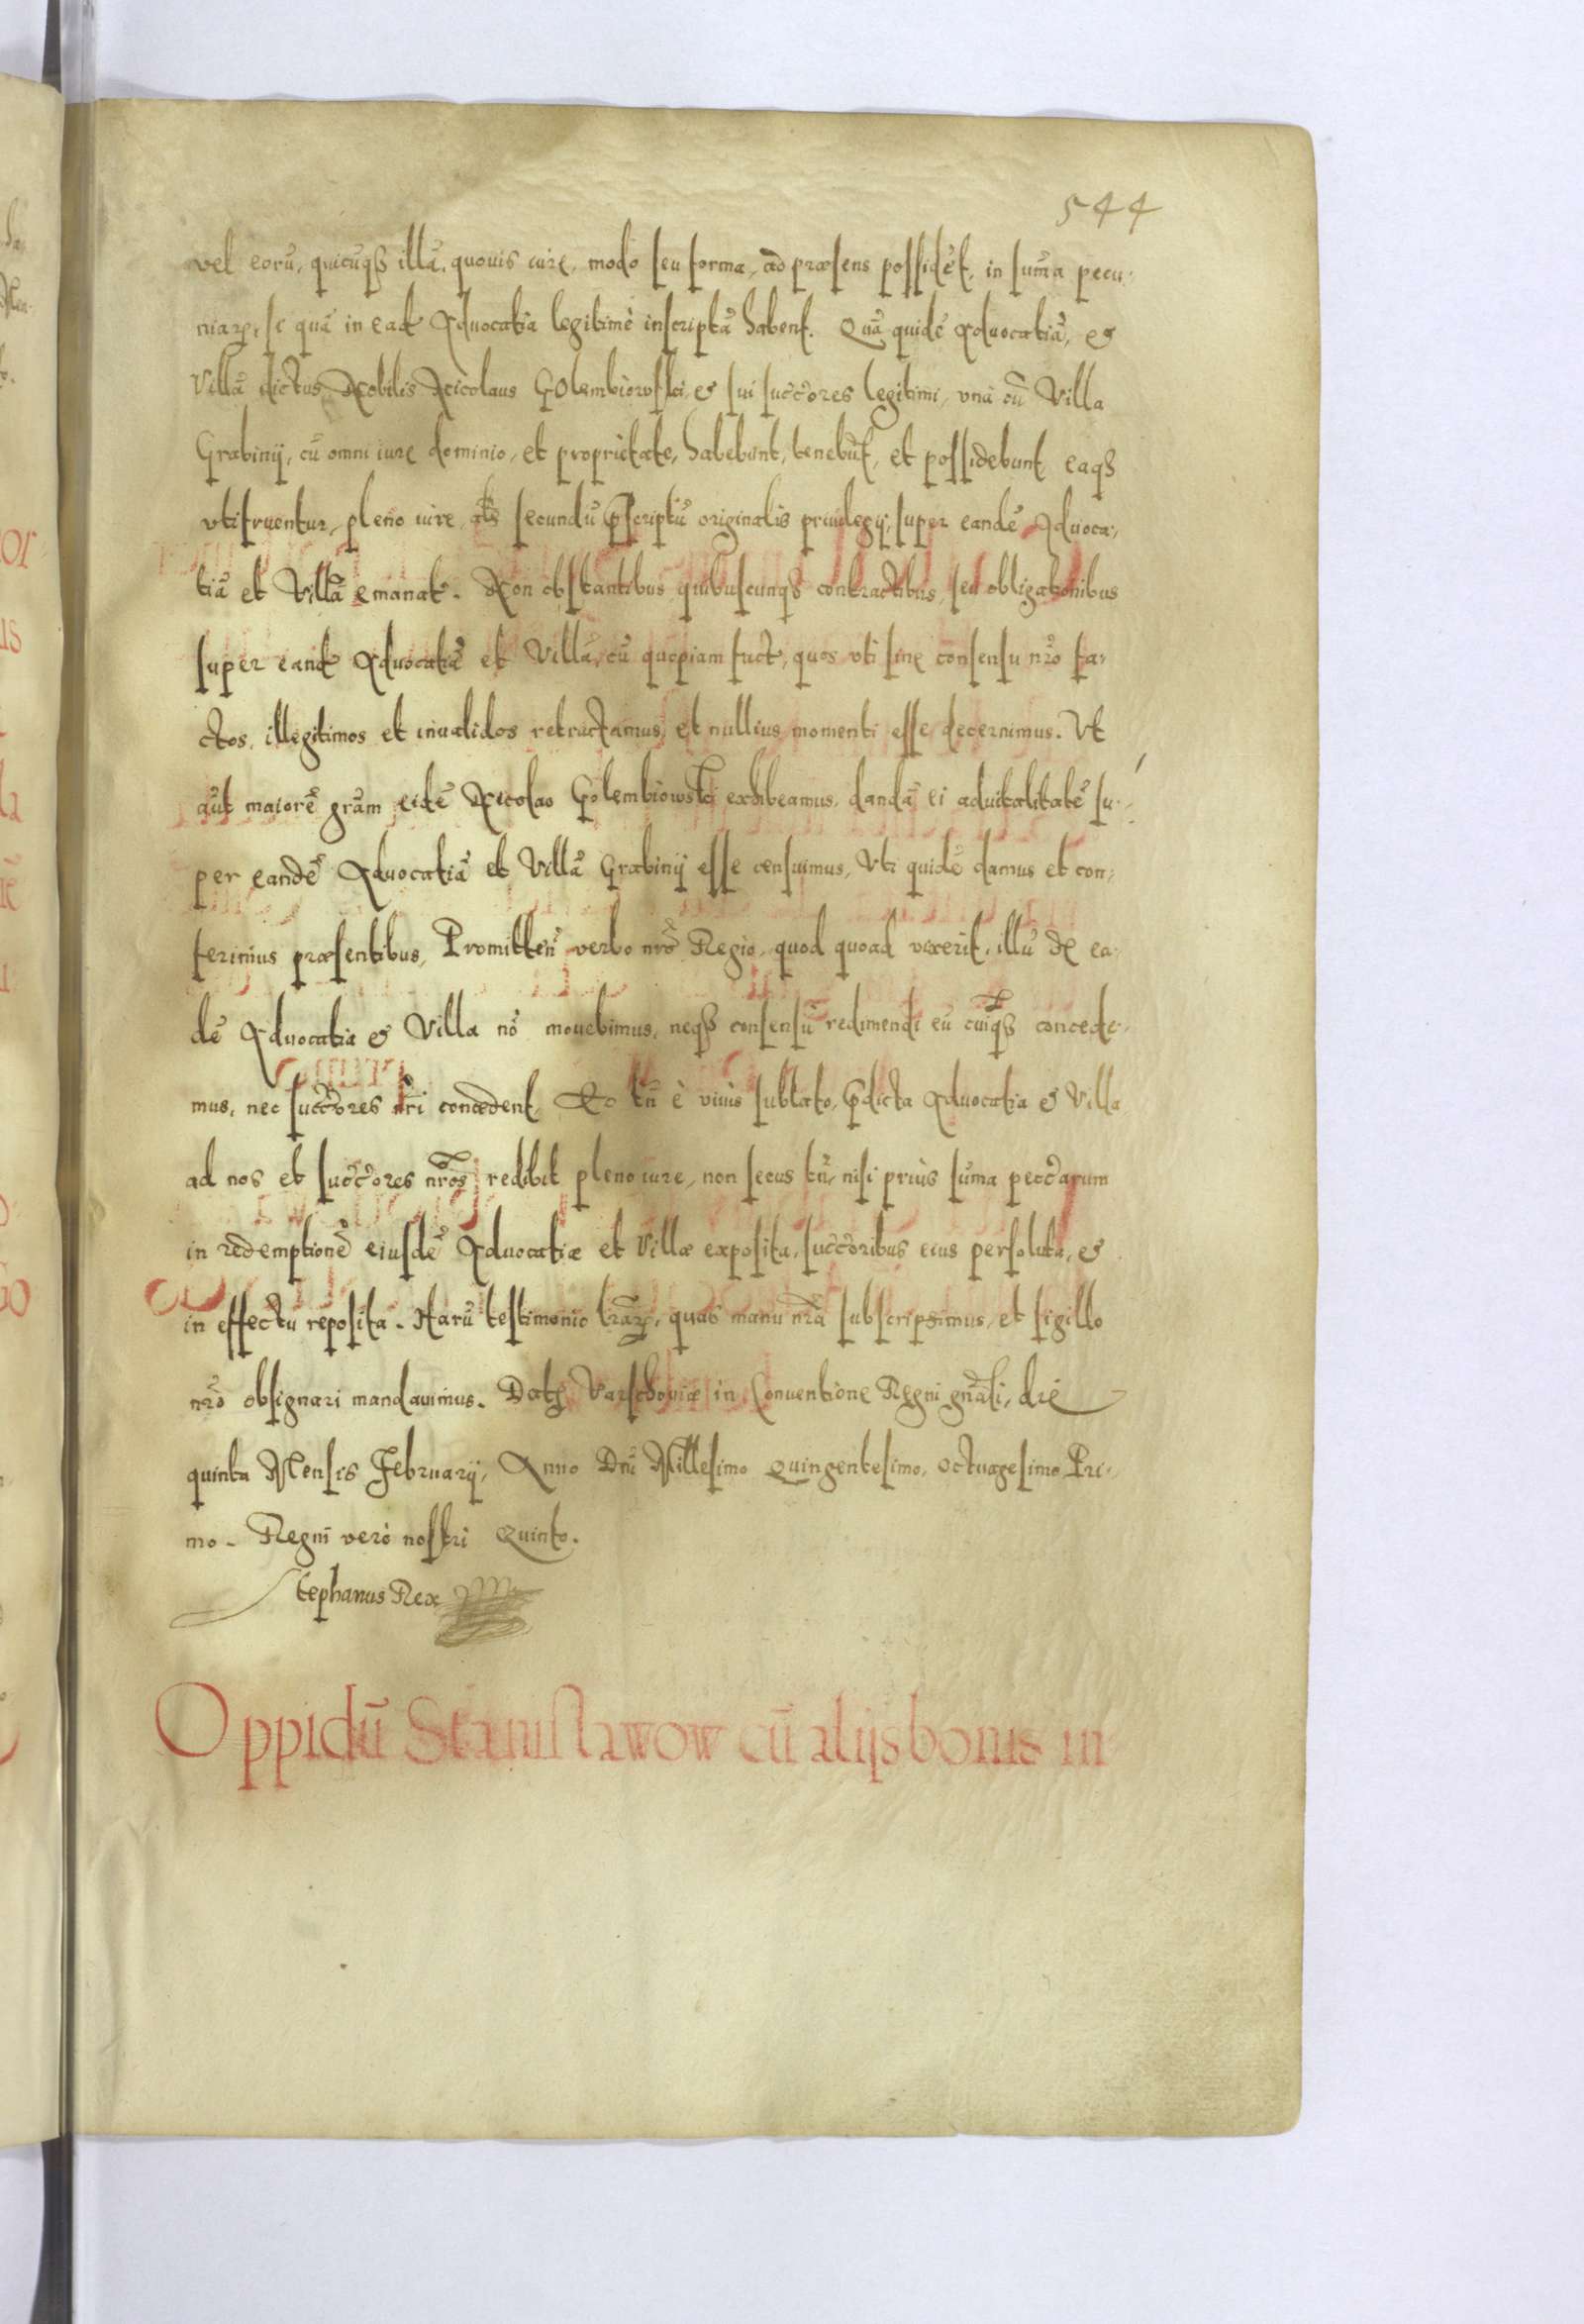 544
vel eorū, quicūqȝ illā, quouis iure, modo seu forma, ad præsens possidēt, in sum̄a pecu-
niaꝝ, si quā in eadē Aduocatia legitimè inscriptā habent. Quā quidē Aduocatiā, et
Villā dictus Nobilis Nicolaus GOlembiowski, et sui succōres legitimi, vnà cū Villa
Grabinij, cū omni iure dominio, et proprietate, habebunt, tenebūt, et possidebunt, eaqȝ
vtifruentur, pleno iure, secundū p̄scriptū originalis priuilegij, super eandē Aduoca-
tiā et Villā emanat. Non obstantibus quibuscunqȝ contractibus, seu obligationibus
super eandē Aduocatiā et Villā, cū quopiam fact, quos vti sine consensu nr̄o fa-
ctos, illegitimos et inualidos retractamus, et nullius momenti esse decernimus. Vt
aūt maiorē gr̄am eidē Nicolao Golembiowski exhibeamus, dandā ei aduitalitatē su-
per eandē Aduocatiā et Villā Grabinij esse censuimus, Vti quidē damus et con-
ferimus præsentibus, Promitteñ verbo nr̄o Regio, quod quoad vixerit, illū de ea-
dē Aduocatia et Villa nō mouebimus, neqȝ consensū redimendi eū cuiqȝ concede-
mus, nec succōres nr̄i concedent. Eo tn̄ è viuis sublato, p̄dicta Aduocatia et Villa
ad nos et succōres nr̄os redibit pleno iure, non secus tn̄, nisi priùs sum̄a pecc̄arum
in redemptionē eiusdē Aduocatiæ et Villæ exposita, succōribus eius persoluta, et
in effectu reposita. Harū testimonio lr̄aꝝ, quas manu nr̄a subscripsimus, et sigillo
nr̄o obsignari mandauimus. Datꝫ Varschouiæ in Conuentione Regni gn̄ali, die
quinta Mensis Februarij, Anno Dn̄i Millesimo Quingentesimo, octuagesimo Pri-
mo. Regni verò nostri Quinto.
Stephanus Rex
Oppidū Stanislawow cū alijs bonis in